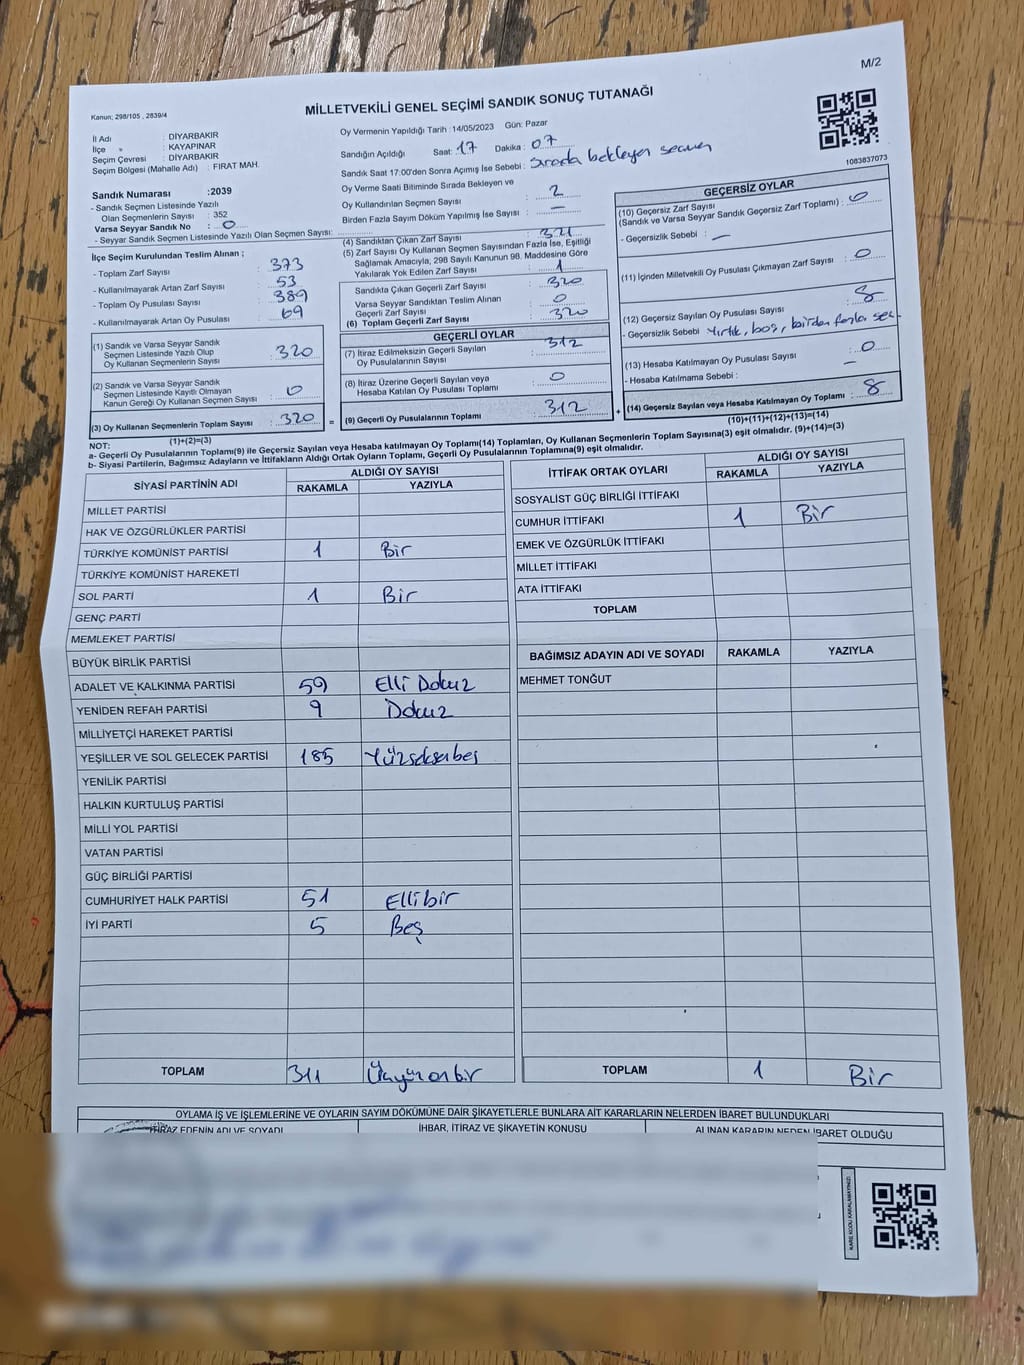 M/2
Kanun: 298/105 , 2839/4
MİLLETVEKİLİ GENEL SEÇİMİ SANDIK SONUÇ TUTANAĞI
İl Adı : DİYARBAKIR
İlçe " : KAYAPINAR
Seçim Çevresi : DİYARBAKIR
Seçim Bölgesi (Mahalle Adı) : FIRAT MAH.
Oy Vermenin Yapıldığı Tarih : 14/05/2023 Gün: Pazar
Sandığın Açıldığı Saat: 17 Dakika : 07
Sandık Saat 17:00'den Sonra Açımış İse Sebebi : Sırada bekleyen seçmen
Oy Verme Saati Bitiminde Sırada Bekleyen ve
Oy Kullandırılan Seçmen Sayısı : 2
Birden Fazla Sayım Döküm Yapılmış İse Sayısı : —
1083837073
Sandık Numarası : 2039
- Sandık Seçmen Listesinde Yazılı
Olan Seçmenlerin Sayısı : 352
Varsa Seyyar Sandık No : 0
- Seyyar Sandık Seçmen Listesinde Yazılı Olan Seçmen Sayısı:
İlçe Seçim Kurulundan Teslim Alınan ;
- Toplam Zarf Sayısı : 373
- Kullanılmayarak Artan Zarf Sayısı : 53
- Toplam Oy Pusulası Sayısı : 389
- Kullanılmayarak Artan Oy Pusulası : 69
(1) Sandık ve Varsa Seyyar Sandık
Seçmen Listesinde Yazılı Olup
Oy Kullanan Seçmenlerin Sayısı : 320
(2) Sandık ve Varsa Seyyar Sandık
Seçmen Listesinde Kayıtlı Olmayan
Kanun Gereği Oy Kullanan Seçmen Sayısı : 0
(3) Oy Kullanan Seçmenlerin Toplam Sayısı : 320 =
(1)+(2)=(3)
(4) Sandıktan Çıkan Zarf Sayısı : 321
(5) Zarf Sayısı Oy Kullanan Seçmen Sayısından Fazla İse, Eşitliği
Sağlamak Amacıyla, 298 Sayılı Kanunun 98. Maddesine Göre
Yakılarak Yok Edilen Zarf Sayısı : 1
Sandıkta Çıkan Geçerli Zarf Sayısı : 320
Varsa Seyyar Sandıktan Teslim Alınan
Geçerli Zarf Sayısı : 0
(6) Toplam Geçerli Zarf Sayısı : 320
GEÇERLİ OYLAR
(7) İtiraz Edilmeksizin Geçerli Sayılan
Oy Pusulalarının Sayısı : 312
(8) İtiraz Üzerine Geçerli Sayılan veya
Hesaba Katılan Oy Pusulası Toplamı : 0
(9) Geçerli Oy Pusulalarının Toplamı : 312 +
GEÇERSİZ OYLAR
(10) Geçersiz Zarf Sayısı
(Sandık ve Varsa Seyyar Sandık Geçersiz Zarf Toplamı) : 0
- Geçersizlik Sebebi : —
(11) İçinden Milletvekili Oy Pusulası Çıkmayan Zarf Sayısı : 0
(12) Geçersiz Sayılan Oy Pusulası Sayısı : 8
- Geçersizlik Sebebi Yırtık, boş, birden fazla seç.
(13) Hesaba Katılmayan Oy Pusulası Sayısı : 0
- Hesaba Katılmama Sebebi : —
(14) Geçersiz Sayılan veya Hesaba Katılmayan Oy Toplamı : 8
(10)+(11)+(12)+(13)=(14)
NOT:
a- Geçerli Oy Pusulalarının Toplamı(9) ile Geçersiz Sayılan veya Hesaba katılmayan Oy Toplamı(14) Toplamları, Oy Kullanan Seçmenlerin Toplam Sayısına(3) eşit olmalıdır. (9)+(14)=(3)
b- Siyasi Partilerin, Bağımsız Adayların ve İttifakların Aldığı Ortak Oyların Toplamı, Geçerli Oy Pusulalarının Toplamına(9) eşit olmalıdır.
SİYASİ PARTİNİN ADI ALDIĞI OY SAYISI
RAKAMLA YAZIYLA
MİLLET PARTİSİ
HAK VE ÖZGÜRLÜKLER PARTİSİ
TÜRKİYE KOMÜNİST PARTİSİ 1 Bir
TÜRKİYE KOMÜNİST HAREKETİ
SOL PARTİ 1 Bir
GENÇ PARTİ
MEMLEKET PARTİSİ
BÜYÜK BİRLİK PARTİSİ
ADALET VE KALKINMA PARTİSİ 59 Elli Dokuz
YENİDEN REFAH PARTİSİ 9 Dokuz
MİLLİYETÇİ HAREKET PARTİSİ
YEŞİLLER VE SOL GELECEK PARTİSİ 185 Yüzseksenbeş
YENİLİK PARTİSİ
HALKIN KURTULUŞ PARTİSİ
MİLLİ YOL PARTİSİ
VATAN PARTİSİ
GÜÇ BİRLİĞİ PARTİSİ
CUMHURİYET HALK PARTİSİ 51 Ellibir
İYİ PARTİ 5 Beş
TOPLAM 311 Üçyüz onbir
İTTİFAK ORTAK OYLARI ALDIĞI OY SAYISI
RAKAMLA YAZIYLA
SOSYALİST GÜÇ BİRLİĞİ İTTİFAKI
CUMHUR İTTİFAKI 1 Bir
EMEK VE ÖZGÜRLÜK İTTİFAKI
MİLLET İTTİFAKI
ATA İTTİFAKI
TOPLAM
BAĞIMSIZ ADAYIN ADI VE SOYADI RAKAMLA YAZIYLA
MEHMET TONĞUT
TOPLAM 1 Bir
OYLAMA İŞ VE İŞLEMLERİNE VE OYLARIN SAYIM DÖKÜMÜNE DAİR ŞİKAYETLERLE BUNLARA AİT KARARLARIN NELERDEN İBARET BULUNDUKLARI
İTİRAZ EDENİN ADI VE SOYADI İHBAR, İTİRAZ VE ŞİKAYETİN KONUSU ALINAN KARARIN NEDEN İBARET OLDUĞU
KARE KODU KARALAMAYINIZ!